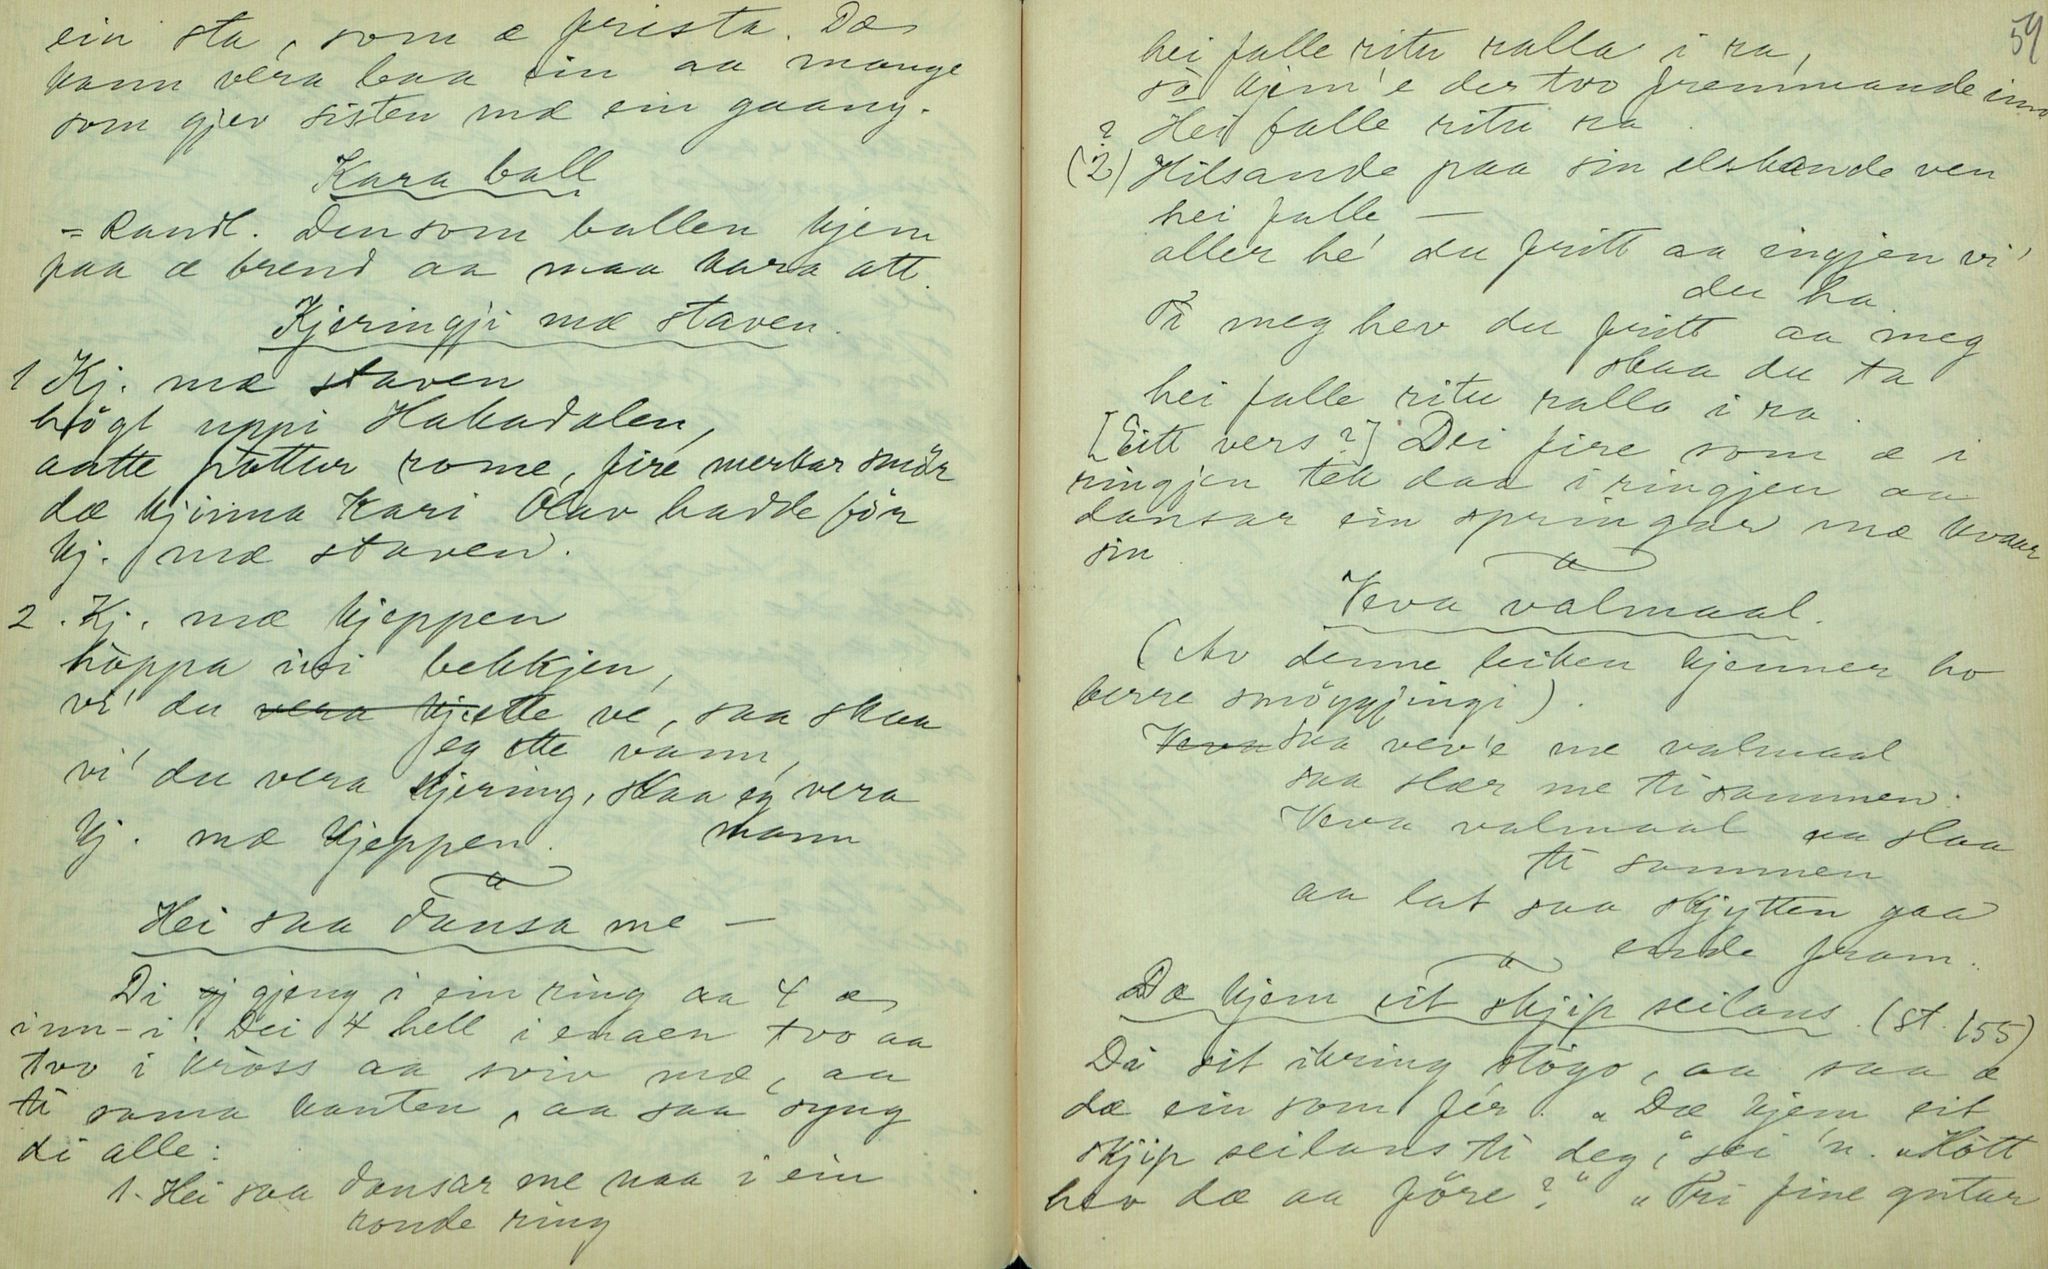 ein sta, som æ frista. Dæ
kann vera baa ein aa mange
som gjev sisten mæ ein gaang.
Kara ball
= Randl. Den som ballen kjem
paa æ brend aa maa kara att.
Kjeringji mæ staven.
1 Kj. mæ staven
högt uppi Hakadalen,
aatte pottur rome, fire merkar smör
dæ kjinna Kari Olav hadde för
kj. mæ staven.
2. Kj. mæ kjeppen
hoppa ivi bekkjen,
vi' du vera kj. ette ve, saa skaa
eg ette vann,
vi' du vera kjering, skaa eg vera
mann
kj. mæ kjeppen.
Hei saa dansa me —
Di gj gjeng i ein ring aa 4 æ
inn-i. Dei 4 hell i enaen tvo aa
tvo i kross aa sviv mæ, aa
ti sama kanten, aa saa syng
di alle:
1. Hei saa dansar me naa i ein
ronde ring
59
hei falle ritu ralla i ra,
so kjem'e der tvo fremmande inn
? Hei falle ritu ra.
(2) Hilsande paa sin elskande ven
hei falle —
aller he' du fritt aa ingjen vi'
du ha
Fi meg hev du fritt aa meg
skaa du ta
hei falle ritu ralla i ra.
[Eitt vers?] Dei fire som æ i
ringjen tek daa i ringjen aa
dansar ein springar mæ kvaar
sin
Veva valmaal.
(Av denne leiken kjenner ho
berre smöygjingi).
Veva Saa vev'e me valmaal
saa slær me ti sammen.
Veva valmaal aa slaa
ti sammen
aa lat saa skjytten gaa
ende fram.
Dæ kjem eit skjip seilans. (st. 155)
Di sit ikring stögo, aa saa æ
dæ ein som fer. „Dæ kjem eit
skjip seilans ti deg," sei 'n. „Kött
hev dæ aa före?" „Tri fine gutar